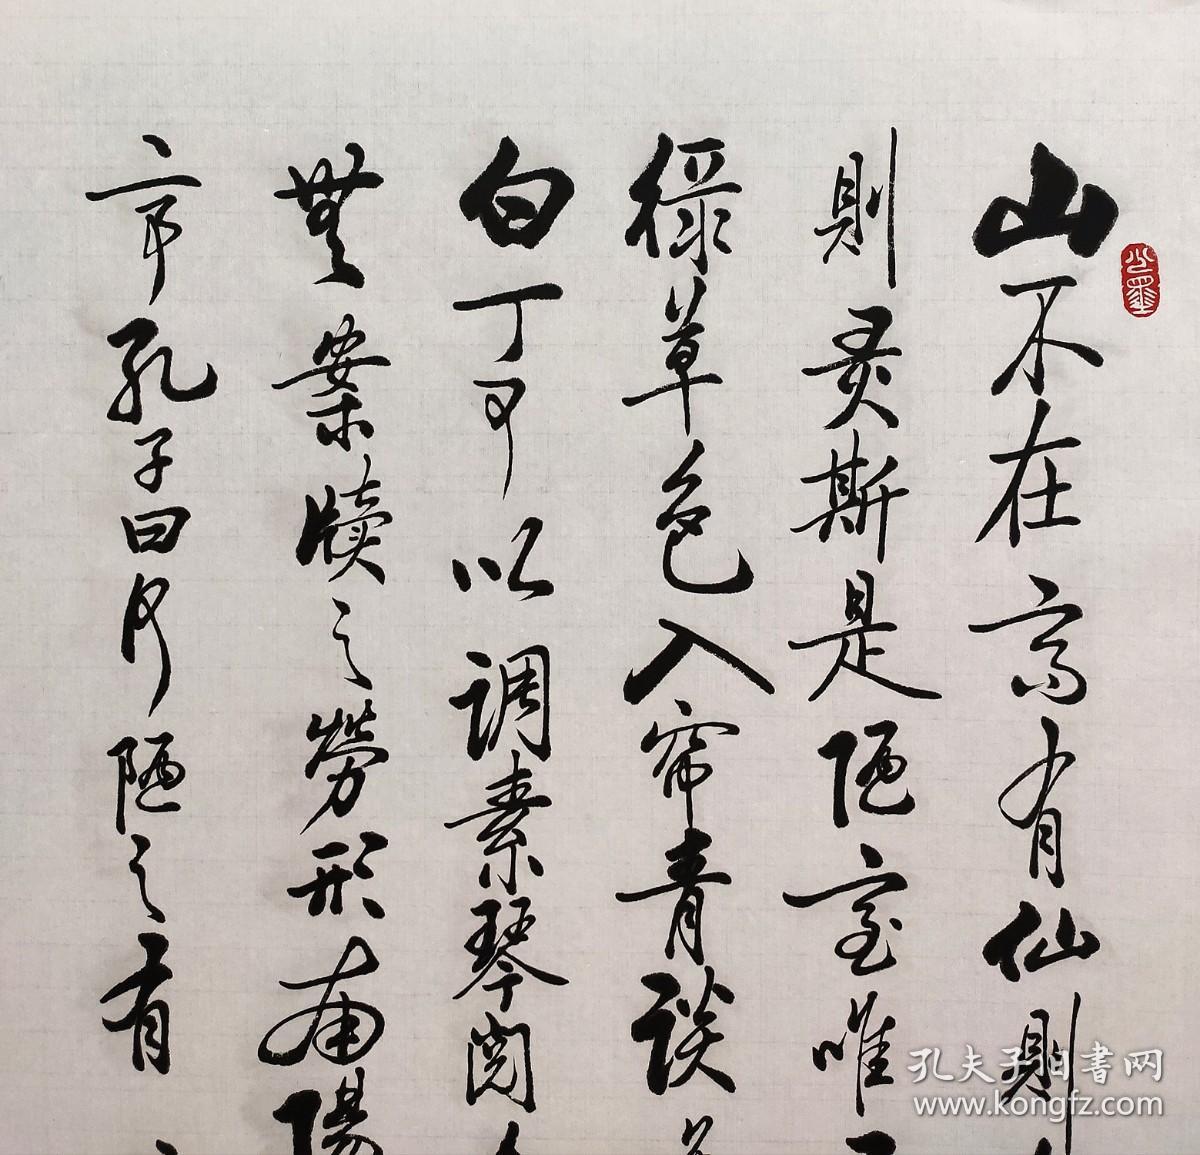 山不在高有仙則
則灵斯是陋室唯
绿草色入帘青谈
白丁可以调素琴阅
無案牘之勞形南陽
亭孔子曰何陋之有
孔夫子旧书网
www.kongfz.com